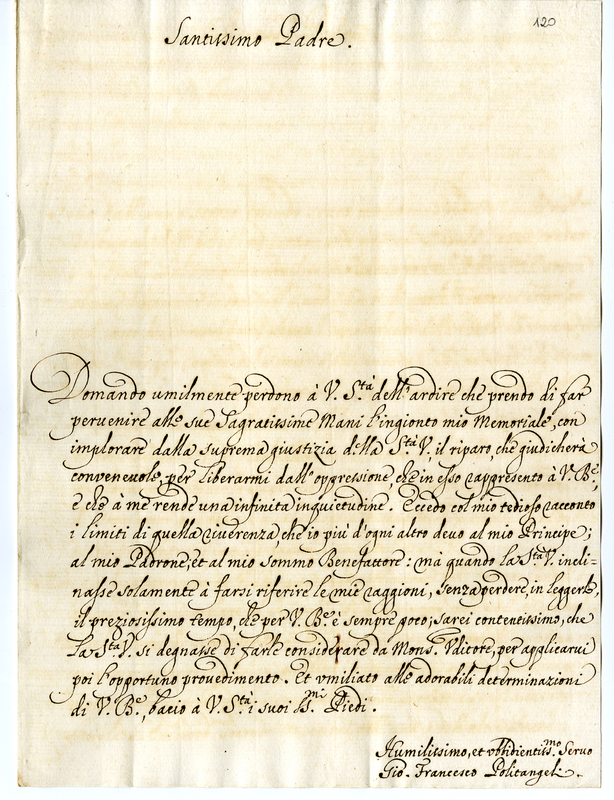 120
Santissimo Padre.
Domando umilmente perdono à V. S.tà dell'ardire che prendo di far
pervenire alle sue Sagratissime Mani l'ingionto mio Memoriale, con
implorare dalla suprema giustizia della S.tà V. il riparo, che giudicherà
convenevole, per liberarmi dall'oppressione, che in esso rappresento à V. B.e,
e che à me rende una infinita inquietudine. Eccedo col mio tedioso racconto
i limiti di quella riverenza, che io più d'ogni altro devo al mio Principe;
al mio Padrone; et al mio sommo Benefattore: mà quando la S.tà V. incli-
nasse solamente à farsi riferire le mie raggioni, senza perdere, in leggerle,
il preziosissimo tempo, che per V. B.e è sempre poco; sarei contentissimo, che
la S.tà V. si degnasse di farle considerare da Mons.r Vditore, per applicarvi
poi l'opportuno provedimento. Et vmiliato alle adorabili determinazioni
di V. B.e, bacio à V. S.tà i suoi SS.mi Piedi.
Humilissimo, et vbbidientiss.mo Servo
Gio. Francesco Politangeli